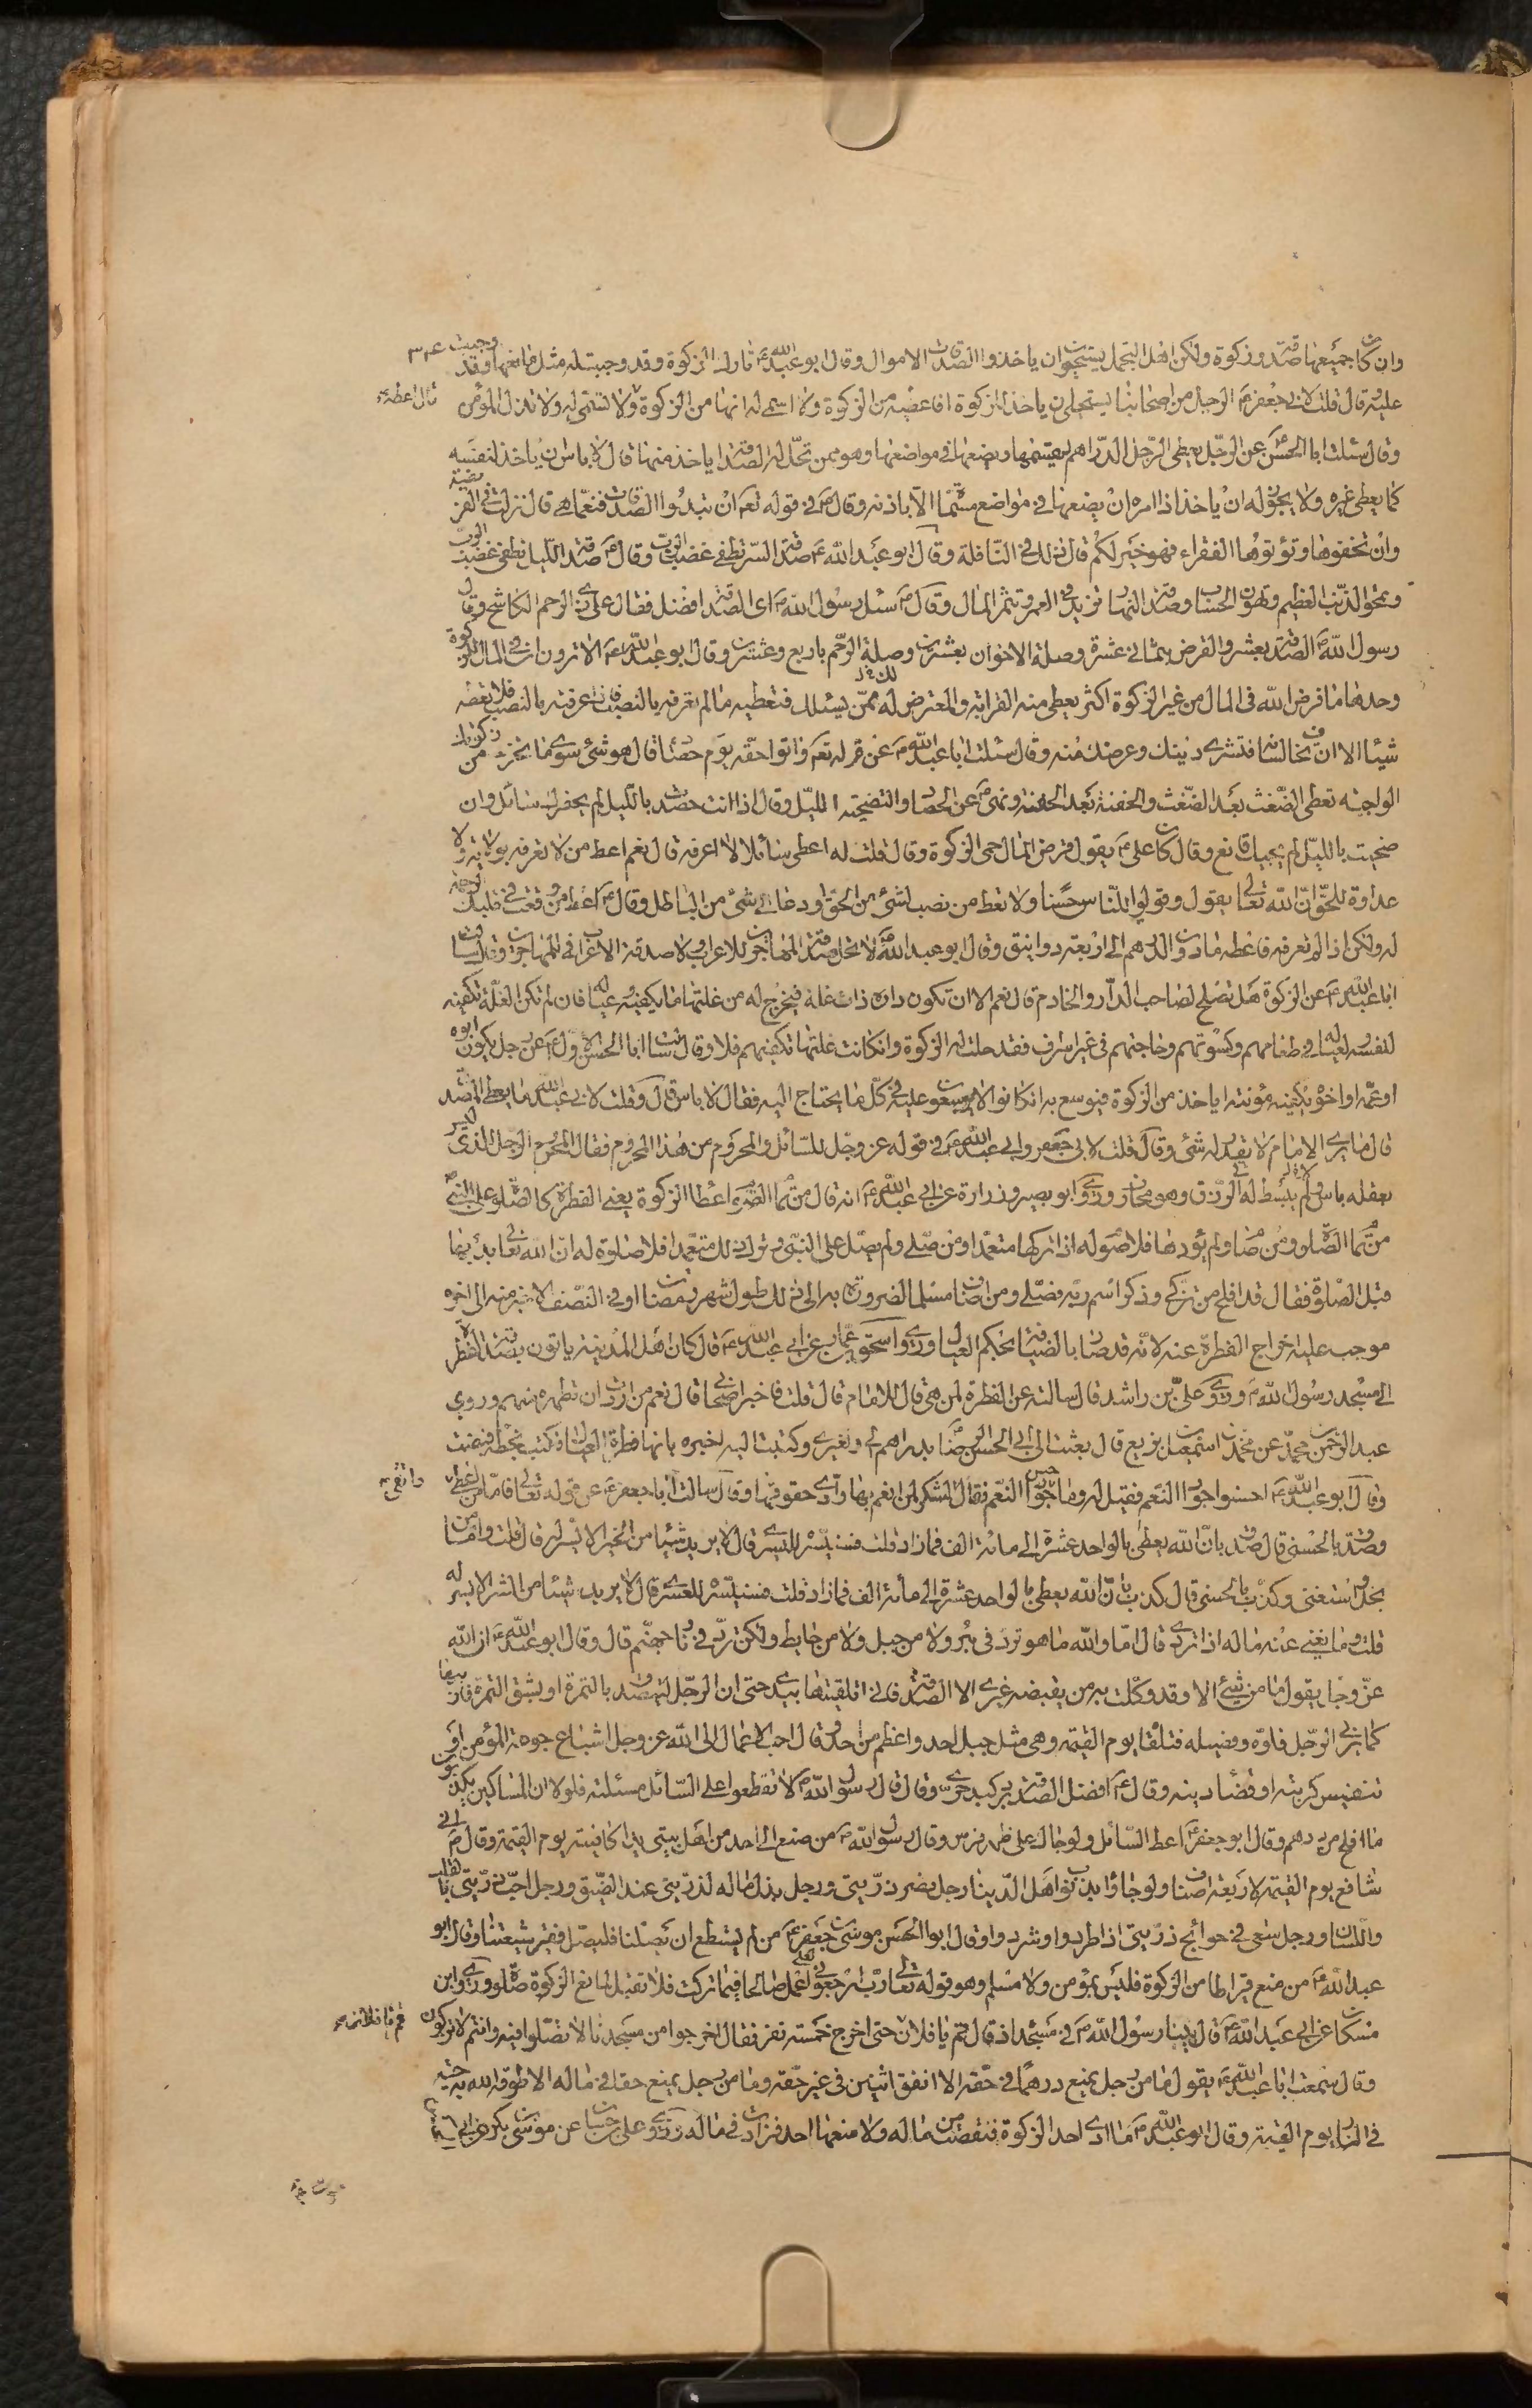 وان كان جميعها صدقة وزكوة ولكن اهل التجمل يستحيون ان ياخذوا الصدقات الاموال وقال ابو عبد الله ع تارك الزكوة وقد وجبت له مثل مانعها وقد وجبت
عليه قال قلت لابي جعفر ع الرجل من اصحابنا يستحيي ان ياخذ الزكوة افاعطيه من الزكوة ولا اسمي له انها من الزكوة ولا تسمي له ولا تذل المؤمن
قال اعطه
وقال سئلت ابا الحسن ع عن الرجل يعطي الرجل الدراهم يقسمها ويضعها في مواضعها وهو ممن تحل له الصدقة ايا خذ منها قال لا باس ان ياخذ لنفسه
كما يعطي غيره ولا يجوز له ان ياخذ اذا امره ان يضعها في مواضع مسماة الا باذنه وقال ع في قوله تعه ان تبدوا الصدقات فنعما هي قال نزلت في الفريضة
وان تخفوها وتؤتوها الفقراء فهو خير لكم قال ذلك في النافلة وقال ابو عبد الله ع صدقة السر تطفي غضب الرب وقال ع صدقة الليل تطفي غضب الرب
وتمحو الذنب العظيم وتهون الحساب وصدقة النهار تزيد في العمر وتثمر المال وقال ع سئل رسول الله ص اى الصدقة افضل فقال على ذي الرحم الكاشح وقال
رسول الله ص الصدقة بعشر والقرض بثماني عشرة وصلة الاخوان بعشرين وصلة الرحم باربع وعشرين وقال ابو عبد الله ع الا ترون ان في المال الزكوة
وحدها ما فرض الله في المال من غير الزكوة اكثر يعطي منه القرابة والمعترض له ممن يسئلك فتعطيه ما لم تعرفه بالنصب فاذا عرفته بالنصب فلا تعطه
شيئا الا ان تخاف لسانه فتشري دينك وعرضك منه وقال سئلت ابا عبد الله ع عن قوله تعه واتوا حقه يوم حصاده قال هو شئ سوى ما تخرج من زكوتك
الواجبة تعطي الضغث بعد الضغث والحفنة بعد الحفنة ونهى ع عن الحصاد والتضحية الليل وقال اذا انت حصدت بالليل لم يحضرك سائل وان
ضحيت بالليل لم يجيك قانع وقال كان علي ع يقول قرض المال حمى الزكوة وقال قلت له اعطي سائلا لا اعرفه قال نعم اعط من لا تعرفه بولاية ولا
عداوة للحق ان الله تعالى يقول وقولوا للناس حسنا ولا تعط من نصب لشئ من الحق او دعا الى شئ من الباطل وقال ع اعط من وقعت في قلبك الرحمة
له ولكن اذا لم تعرفه فاعطه ما دون الدرهم الى اربعة دوانيق وقال ابو عبد الله ع لا تحل صدقة المهاجرين للاعراب ولا صدقة الاعراب في المهاجرين وقال سالت
ابا عبد الله ع عن الزكوة هل تصلح لصاحب الدار والخادم قال نعم الا ان تكون داره ذات غلة فيخرج له من غلتها ما يكفيه وعياله فان لم تكن الغلة تكفيه
لنفسه ولعياله في طعامهم وكسوتهم وحاجتهم في غير اسراف فقد حلت له الزكوة وان كانت غلتها تكفيهم فلا وقال سالت ابا الحسن الاول ع عن رجل يكون ابوه
او عمه او اخوه يكفيه مؤنته ايا خذ من الزكوة فيوسع به ان كانوا لا يوسعون عليه في كل ما يحتاج اليه فقال لا باس قال وقلت لابي عبد الله ما يعطي المصدق
قال ما يرى الامام لا يقدر له شئ وقال قلت لابي جعفر وابي عبد الله ع في قوله عز وجل للسائل والمحروم من هذا المحروم فقال المحروم الرجل الذى ليس
بعقله باس ولم يبسط له في الرزق وهو محارف وروى ابو بصير وزرارة عن ابي عبد الله ع انه قال من تمام الصوم اعطا الزكوة يعني الفطرة كما الصلوة على النبي ص
من تمام الصلوة ومن صام ولم يؤدها فلا صوم له اذا تركها متعمدا ومن صلى ولم يصل على النبي وترك ذلك متعمدا فلا صلوة له ان الله تعالى بدء بها
قبل الصلوة فقال قد افلح من تزكى وذكر اسم ربه فصلى ومن اضاف مسلما لضرورة به الى ذلك طول شهر رمضان او في النصف الاخير منه الى اخره
موجب عليه اخراج الفطرة عنه لانه قد صار بالضيافة بحكم العيال وروى اسحق بن عمار عن ابي عبد الله ع قال كان اهل المدينة ياتون بصدقة الفطر
الى مسجد رسول الله ص وروى علي بن راشد قال سالته عن الفطرة لمن هي قال للامام قال قلت فاخبر اصحابي قال نعم من اردت ان تطهره منهم وروي
عبد الرحمن بن محمد عن محمد بن اسمعيل بن بزيع قال بعثت الى ابي الحسن الرضا بدراهم لي ولغيري وكتبت اليه اخبره بانها فطرة العيال فكتب بخطه قبضت
وقال ابو عبد الله ع احسنوا جوار النعم فقيل له وما حسن جوار النعم فقال الشكر لمن انعم بها وادى حقوقها وقال سالت ابا جعفر ع عن قوله تعالى فاما من اعطى
واتقى
وصدق بالحسنى قال صدق بان الله يعطي بالواحد عشرة الى مائة الف فما زاد قلت فسنيسره لليسرى قال لا يريد شيئا من الخير الا يسر له قال قلت واما من
بخل واستغنى وكذب بالحسنى قال كذب بان الله يعطي بالواحد عشرة الى مائة الف فما زاد قلت فسنيسره للعسرى قال لا يريد شيئا من الشر الا يسر له
قلت وما يغني عنه ماله اذا تردى قال اما والله ما هو تردى في بئر ولا من جبل ولا من حايط ولكن تردى في نار جهنم قال وقال ابو عبد الله ع ان الله
عز وجل يقول ما من شئ الا وقد وكلت به من يقبضه غيري الا الصدقة فاني اتلقفها بيدي حتى ان الرجل ليتصدق بالتمرة او بشق التمرة فاربيها
كما يربي الرجل فلوه وفصيله فتلقاه يوم القيمة وهي مثل جبل احد واعظم من احد وقال احب الاعمال الى الله عز وجل اشباع جوعة المؤمن او
تنفيس كربته او قضاء دينه وقال ع افضل الصدقة برد كبد حرى وقال قال رسول الله ص لا تقطعوا على السائل مسئلته فلولا ان المساكين يكذبون
ما افلح من ردهم وقال ابو جعفر ع اعط السائل ولو جاءك على ظهر فرس وقال رسول الله ص من صنع الى احد من اهل بيتي يدا كافيته يوم القيمة وقال ص اني
شافع يوم القيمة لاربعة اصناف ولو جاؤا بذنوب اهل الدنيا رجل نصر ذريتي ورجل بذل ماله لذريتي عند الضيق ورجل احب ذريتي بالقلب
واللسان ورجل سعى في حوائج ذريتي اذا طردوا او شردوا وقال ابو الحسن موسى بن جعفر ع من لم يستطع ان يصلنا فليصل فقير شيعتنا وقال ابو
عبد الله ع من منع قيراطا من الزكوة فليس بمؤمن ولا مسلم وهو قوله تعالى رب ارجعون لعلي اعمل صالحا فيما تركت فلا تقبل لمانع الزكوة صلوة وروى ابن
مسكان عن ابي عبد الله ع قال بينا رسول الله ص في مسجد اذ قال قم يا فلان حتى اخرج خمسة نفر فقال اخرجوا من مسجدنا لا تصلوا فيه وانتم لا تزكون
قم يا فلان
وقال سمعت ابا عبد الله ع يقول ما من رجل يمنع درهما في حقه الا انفق اثنين في غير حقه وما من رجل يمنع حقا في ماله الا طوقه الله به حية
في النار يوم القيمة وقال ابو عبد الله ع ما ادى احد الزكوة فنقصت من ماله ولا منعها احد فزادت في ماله وروى علي بن حسان عن موسى بن بكر عن ابي